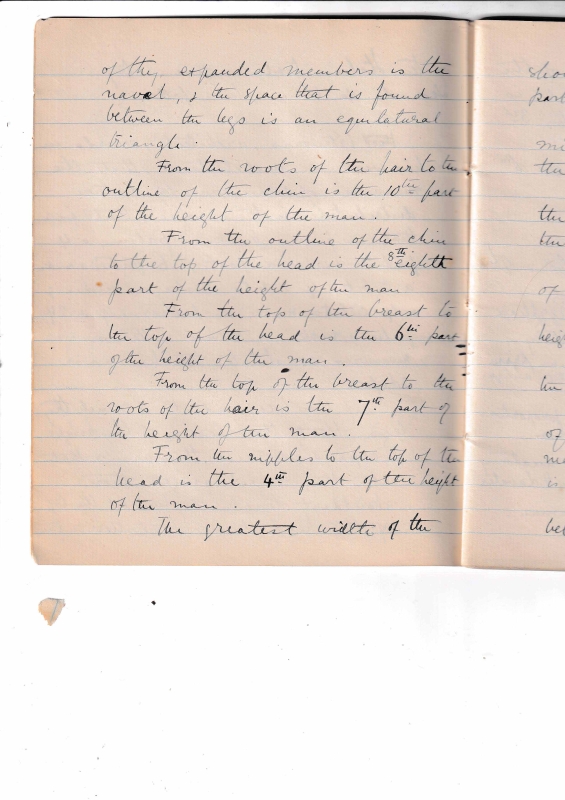 of thy expanded members is the
navel, & the space that is found
between the legs is an equilatural
triangle.
From the roots of the hair to the
outline of the chin is the 10th part
of the height of the man.
From the outline of the chin
to the top of the head is the 8th eighth
part of the height of the man
From the top of the breast to
the top of the head is the 6th part
of the height of the man.
From the top of the breast to the
roots of the hair is the 7th part of
the height of the man.
From the nipples to the top of the
head is the 4th part of the height
of the man.
The greatest width of the
shou
part
the
the
the
of
heig
the
of
is